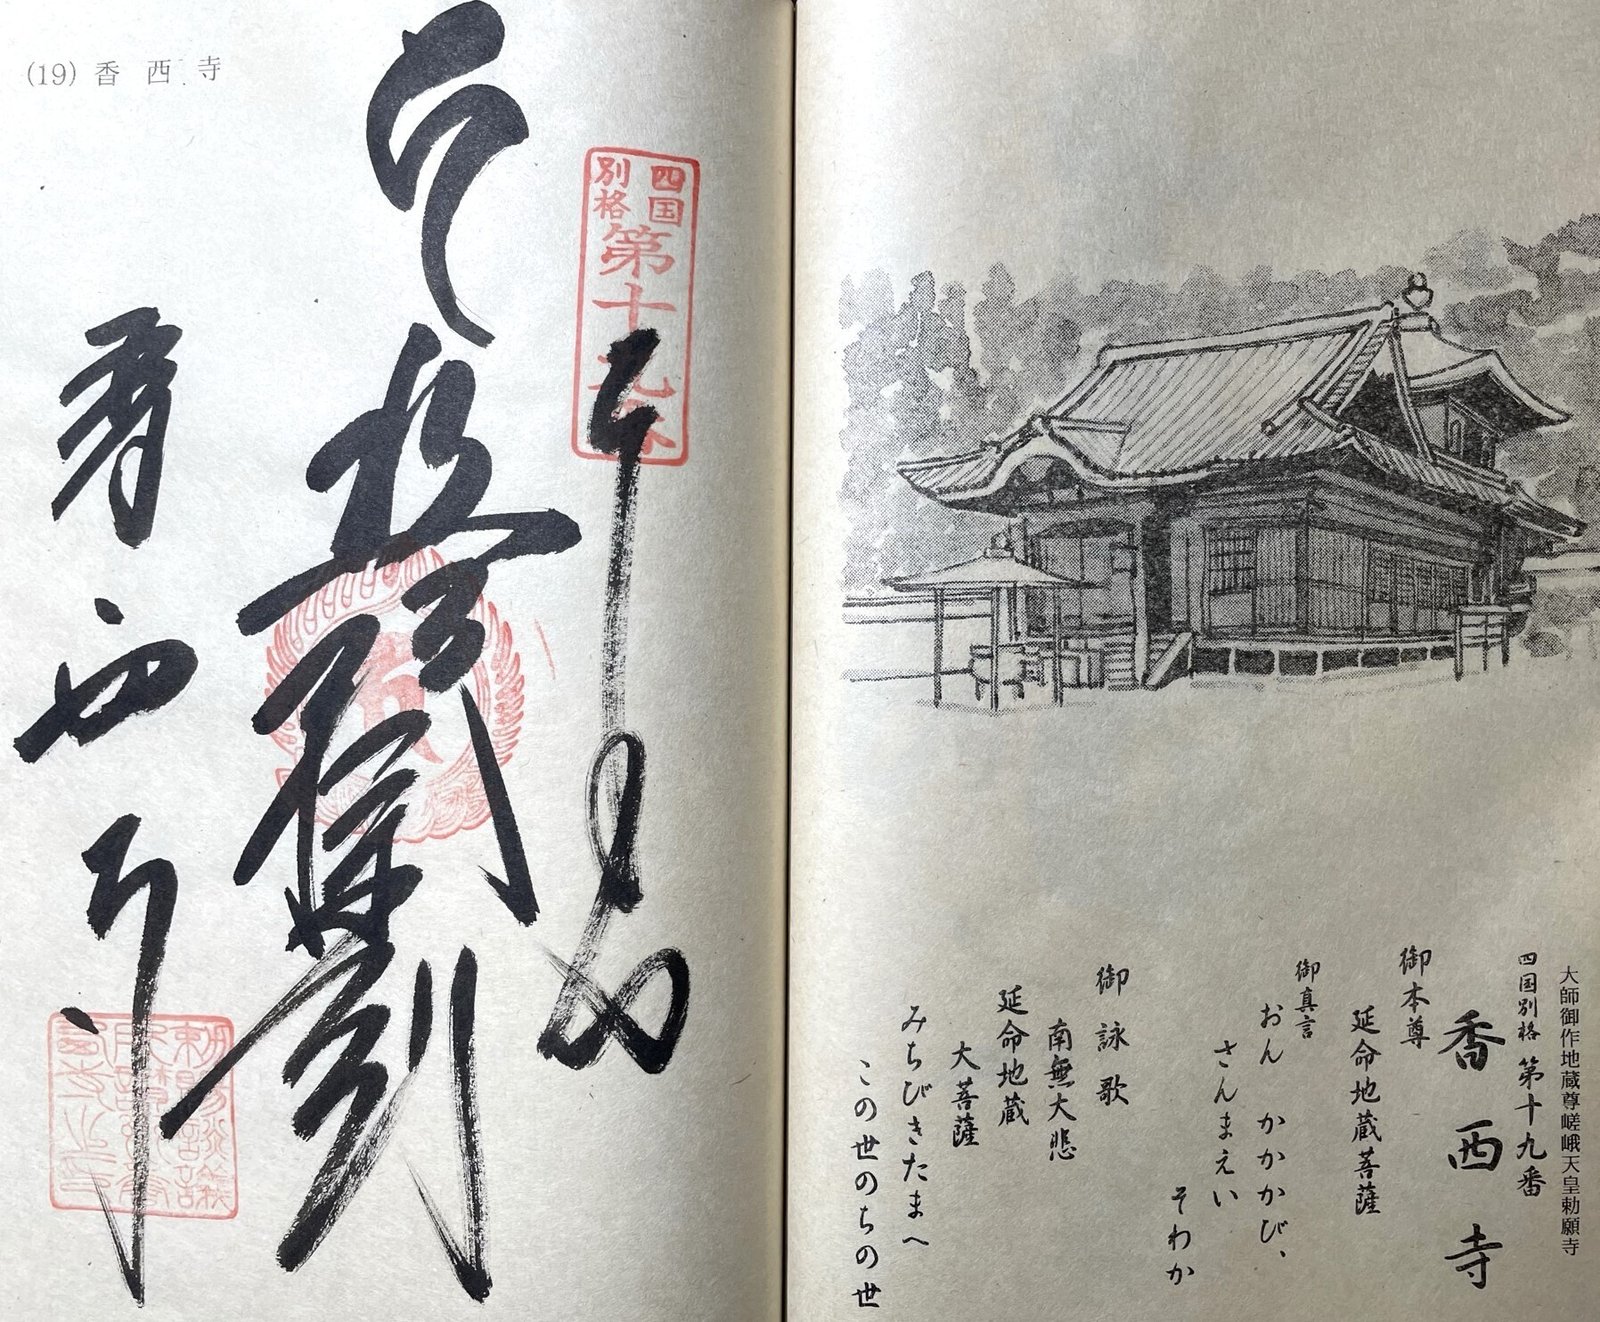 大師御作地蔵尊嵯峨天皇勅願寺
四国別格 第十九番
香西寺
御本尊
延命地蔵菩薩
御真言
おん かかかび、
さんまえい
そわか
御詠歌
南無大悲
延命地蔵
大菩薩
みちびきたまへ
この世のちの世
(19) 香西寺
四国
別格
第十九番
奉
香西寺